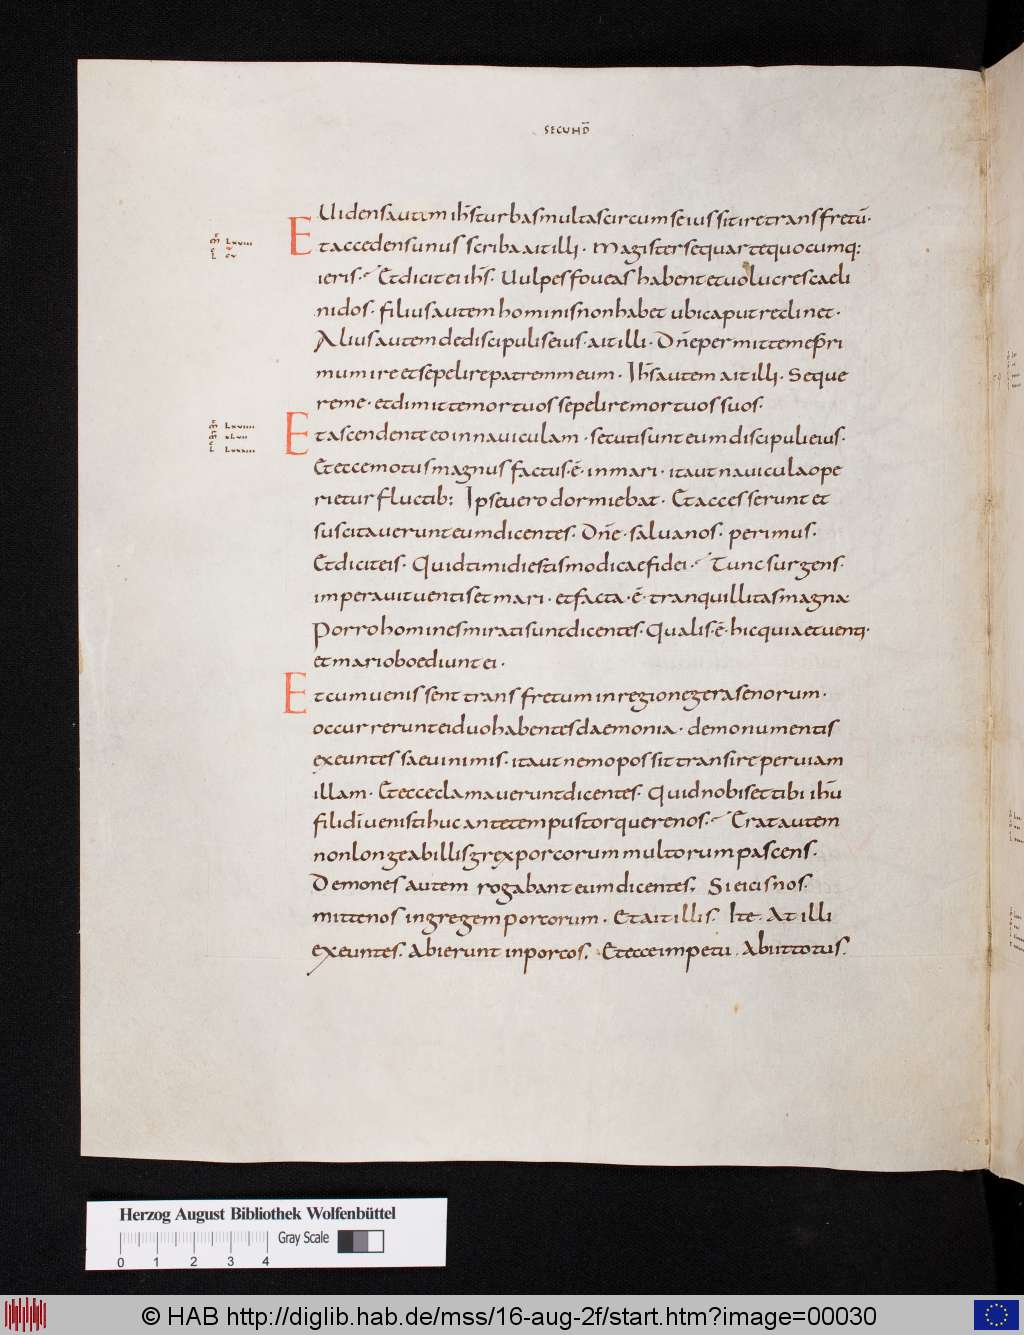 SECUND̄
Uidens autem ih̄s turbas multas circum se iussit ire trans fretū·
Et accedens unus scriba ait illi· Magister sequar te quocumq:
ieris· Et dicit ei ih̄s· Uulpes foueas habent et uolucres caeli
nidos· filius autem hominis non habet ubi caput reclinet·
Alius autem de discipulis eius· ait illi· Dn̄e permitte me pri
mum ire et sepelire patrem meum· Ih̄s autem ait illi· Seque
re me· et dimitte mortuos sepelire mortuos suos·
Et ascendente eo in nauiculam· secuti sunt eum discipuli eius·
Et ecce motus magnus factus ē· in mari· ita ut nauicula ope
rietur fluctib: Ipse uero dormiebat· Et accesserunt et
suscitauerunt eum dicentes· Dn̄e· salua nos· perimus·
Et dicit eis· Quid timidi estis modicae fidei· Tunc surgens·
imperauit uentis et mari· et facta· ē· tranquillitas magna
Porro homines mirati sunt dicentes· Qualis· ē· hic quia et uenti·
et mari oboediunt ei·
Et cum uenissent trans fretum in regione gerasenorum·
occurrerunt ei duo habentes daemonia· de monumentis
exeuntes saeui nimis· ita ut nemo possit transire per uiam
illam· Et ecce clamauerunt dicentes· Quid nobis et tibi ih̄u
fili dī uenisti huc ante tempus torquere nos· Erat autem
non longe ab illis grex porcorum multorum pascens·
Demones autem rogabant eum dicentes; Si eicis nos·
mitte nos in gregem porcorum· Et ait illis· Ite· At illi
exeuntes· abierunt in porcos; Et ecce impetu· abiit totus·
m LXVIII
L CV
m LXVIIII
m XLVII
L LXXXIII
Herzog August Bibliothek Wolfenbüttel
Gray Scale
0 1 2 3 4
© HAB http://diglib.hab.de/mss/16-aug-2f/start.htm?image=00030